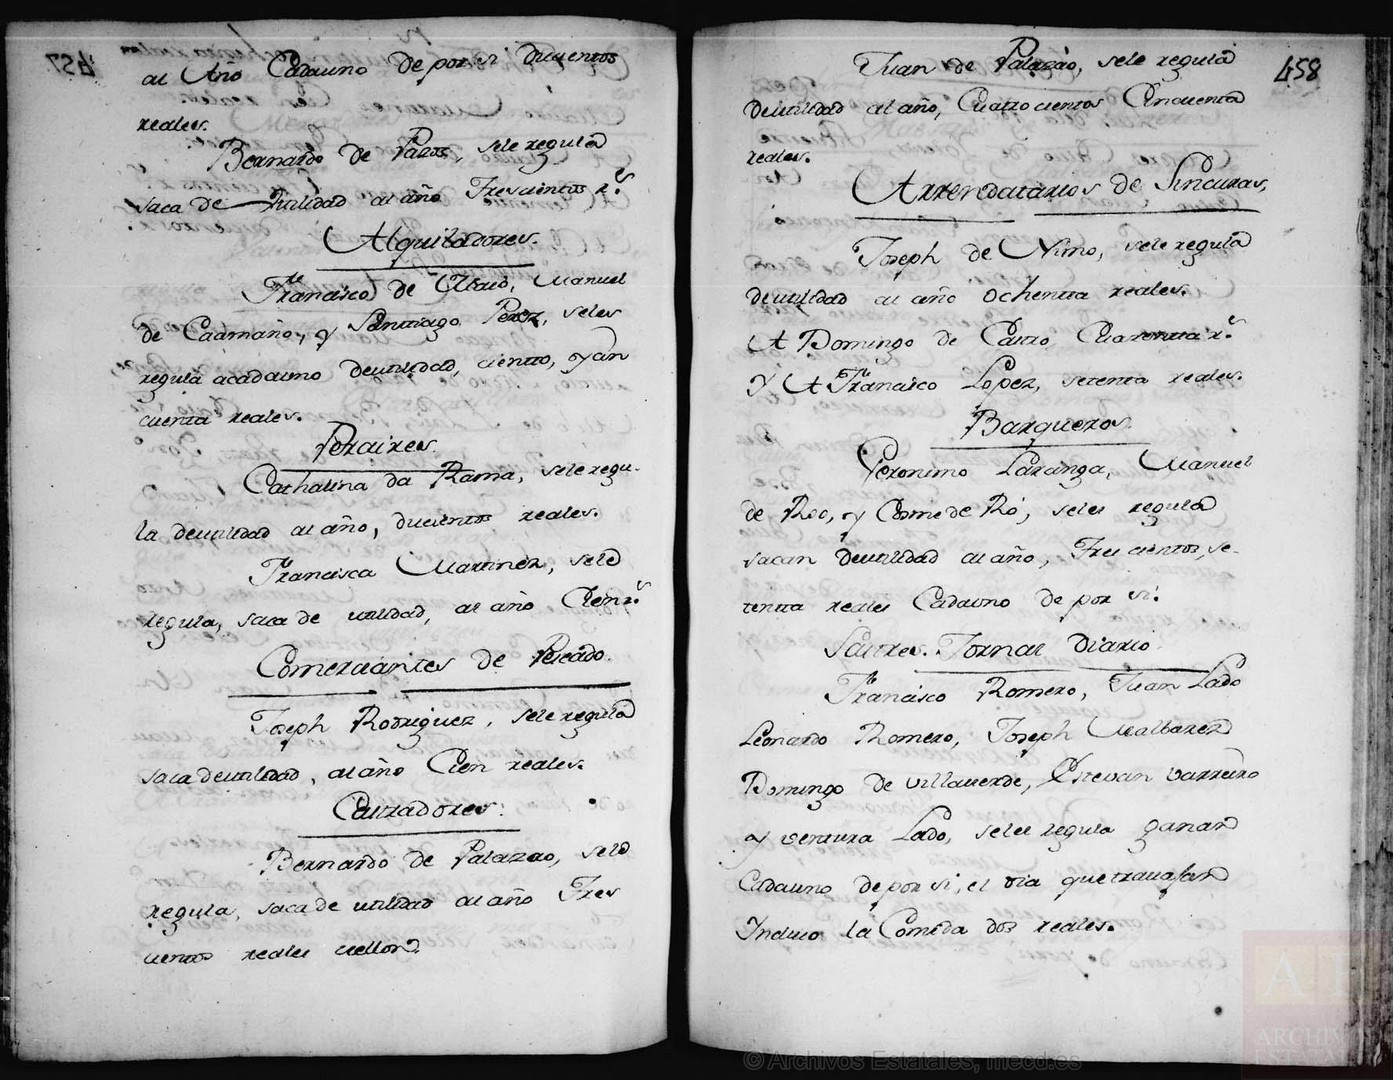 al Año Cadauno de por si Ducientos
reales.
Bernardo de Pazos, sele regula
saca de utilidad al año Trescientos r.s
Alquiladores.
Fran.co de Albaio, Manuel
de Caamaño, y Santiago Perez, seles
regula acadauno deutilidad, ciento, y cin
cuenta reales.
Peraires.
Cathalina da Rama, sele regu-
la deutilidad al año, ducientos reales.
Francisca Martinez, sele
regula, saca de utilidad, al año Cien r.s
Comerciantes de Pescado.
Joseph Rodriguez, sele regula
saca deutilidad, al año Cien reales.
Bernardo de Palazao, sele
regula, saca de utilidad al año Tres
cientos reales vellon.
458
Juan de Palazao, sele regula
deutilidad al año, Cuatrocientos Cincuenta
reales.
Arrendatarios de Sincuras,
Joseph de Nimo, sele regula
deutilidad al año ochenta reales.
A Domingo de Castro, Cuarenta r.s
Y A Francisco Lopez, setenta reales.
Barqueros.
Geronimo Laranga, Manuel
de Roo, y Cosme de Ró, seles regula
sacan deutilidad al año, Trescientos, se-
tenta reales Cadauno de por si.
Sastres. Jornal Diario.
Francisco Romero, Juan Lado
Leonardo Romero, Joseph Malbarez
Domingo de Villaverde, Estevan Varreiro
y ventura Lado, seles regula ganan
Cadauno de por si, el dia que travajan
Incluso la Comida dos reales.
© Archivos Estatales, mecd.es
ARCHIVOS
ESTATALES